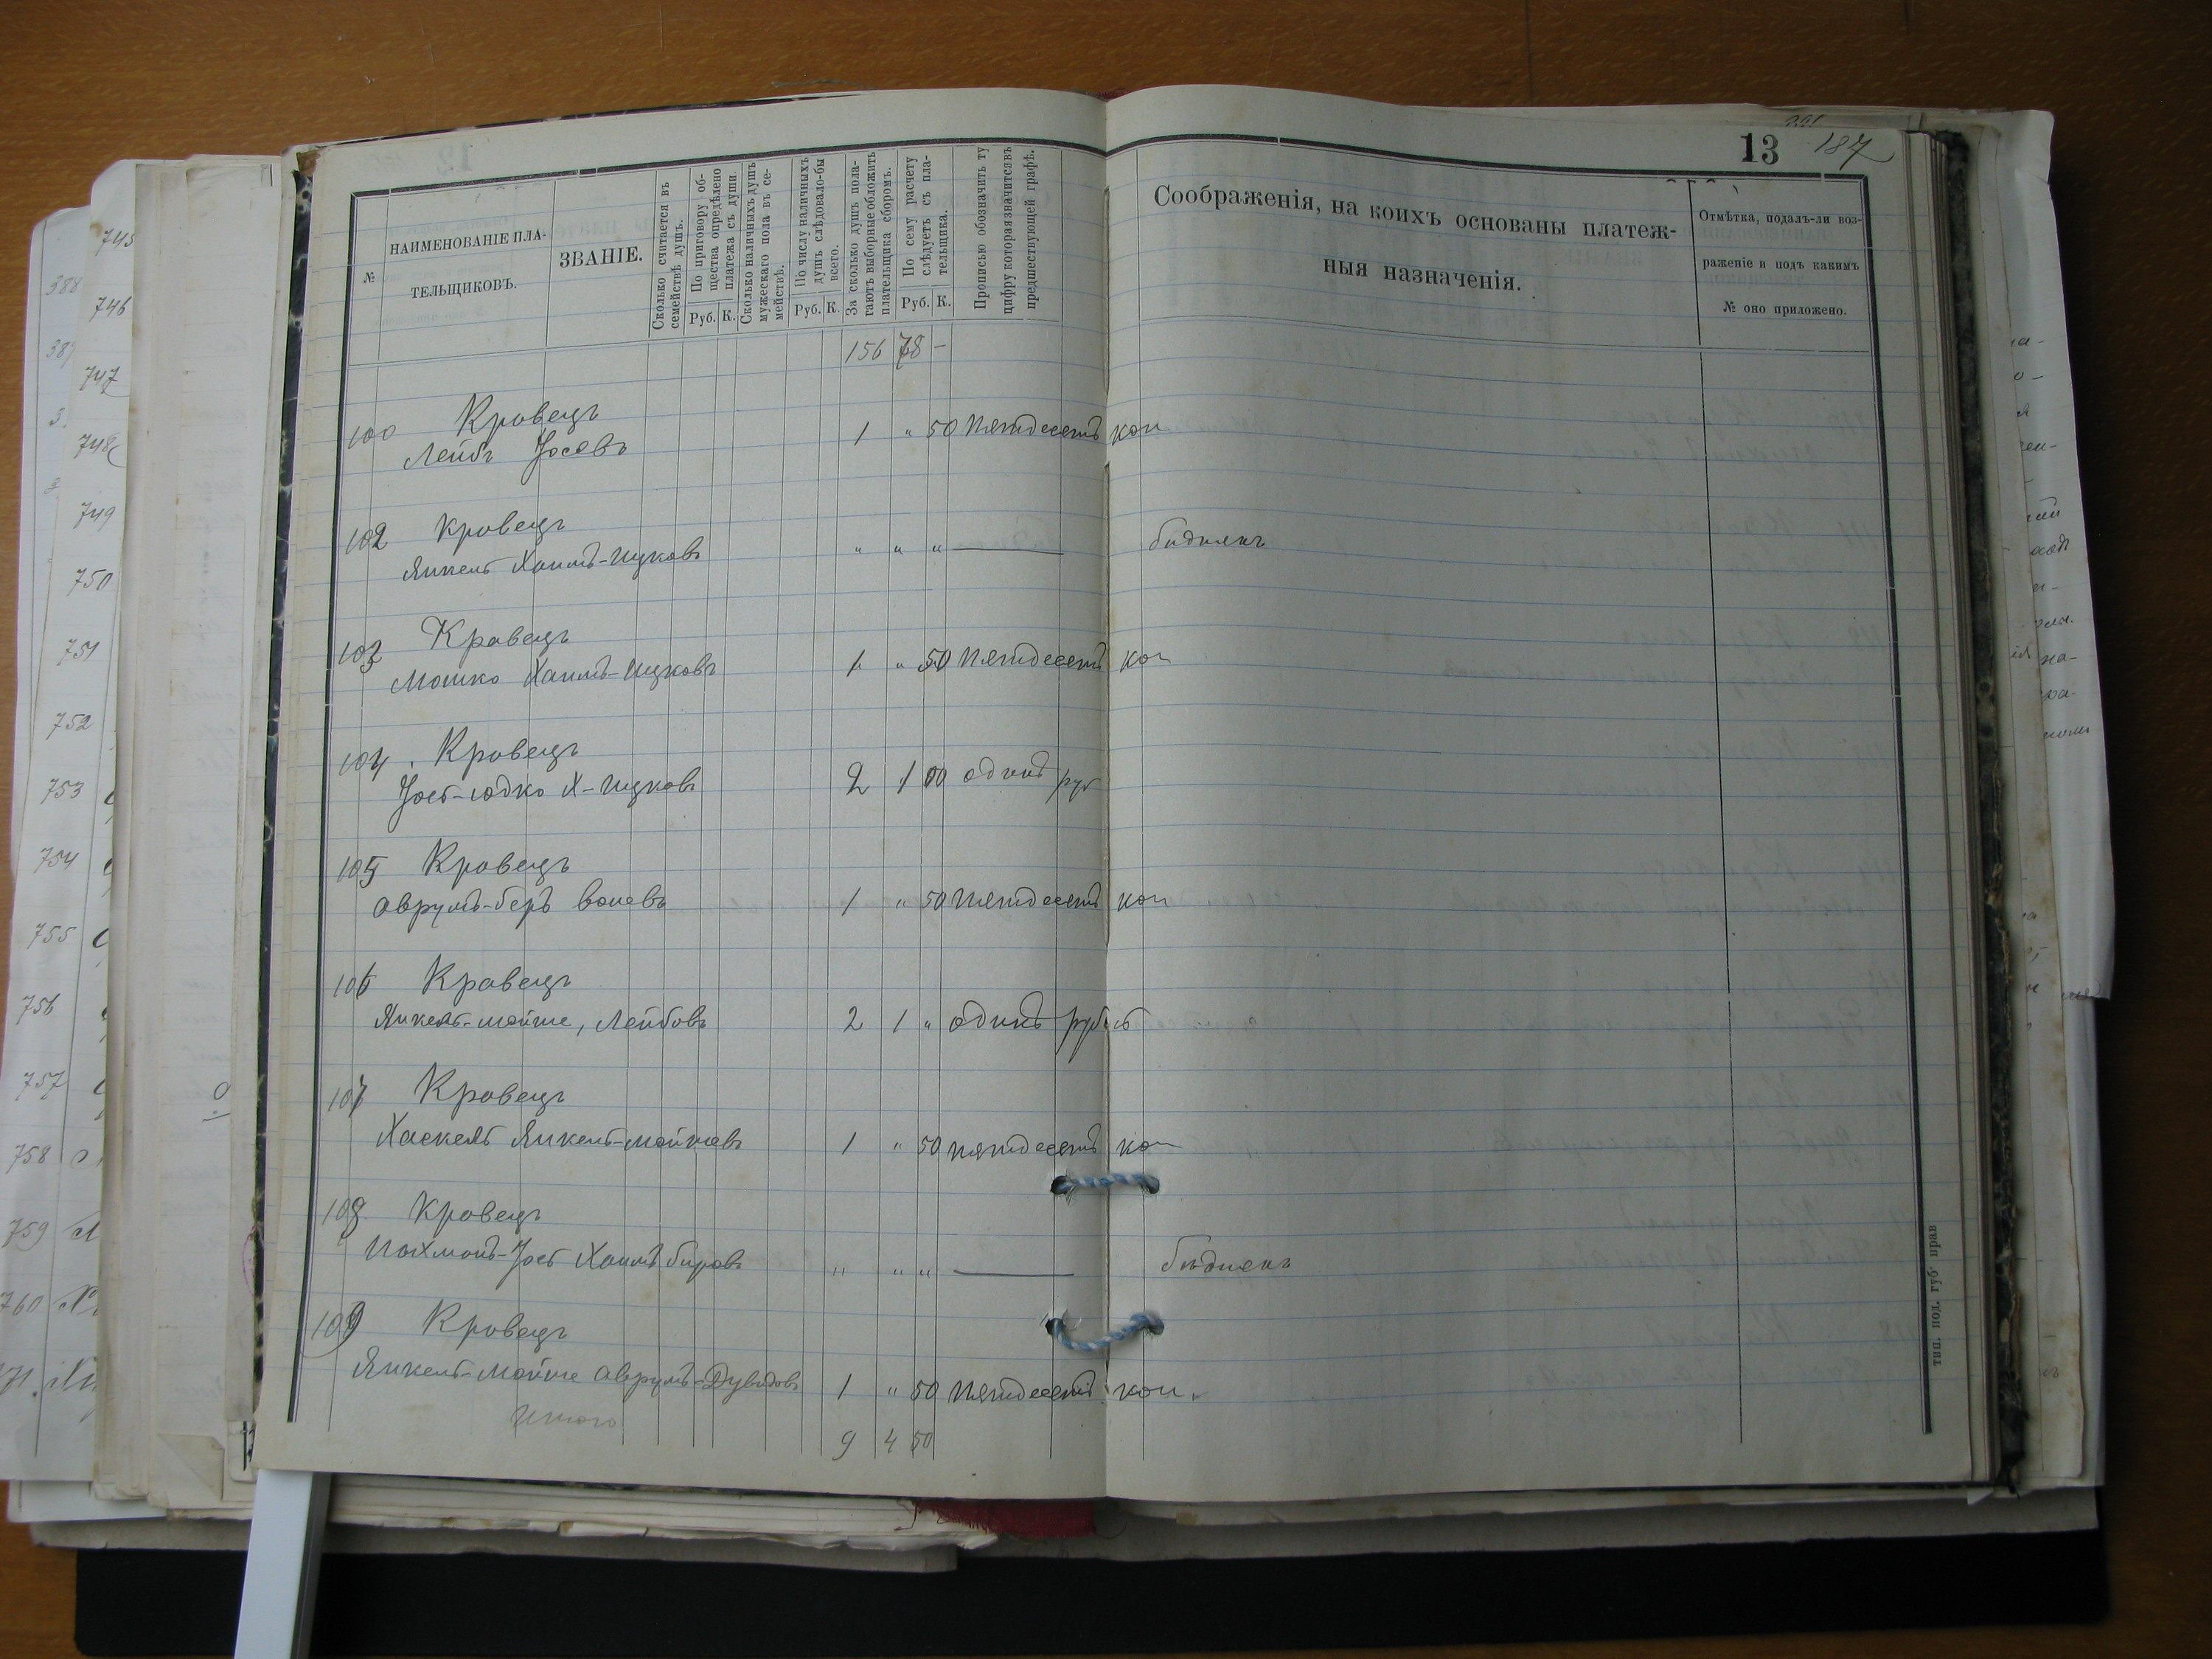 13 187
№
НАИМЕНОВАНІЕ ПЛА-
ТЕЛЬЩИКОВЪ.
ЗВАНІЕ.
Сколько считается въ
семействѣ душъ.
По приговору об-
щества опредѣлено
платежа съ души.
Руб. К.
Сколько наличныхъ душъ
мужескаго пола въ се-
мействѣ.
По числу наличныхъ
душъ слѣдовало-бы
всего.
Руб. К.
За сколько душъ пола-
гаютъ выборные обложить
плательщика сборомъ.
По сему расчету
слѣдуетъ съ пла-
тельщика.
Руб. К.
Прописью обозначить ту
цифру которая значится въ
предшествующей графѣ.
Соображенія, на коихъ основаны платеж-
ныя назначенія.
Отмѣтка, подалъ-ли воз-
раженіе и подъ какимъ
№ оно приложено.
156 78 -
100 Кровецъ
Лейбъ Іосевъ 1 " 50 пятдесятъ коп
102 Кровецъ
Янкель Хаимъ-Ицковъ " " " бѣдненъ
103 Кровецъ
Мошко Хаимъ-Ицковъ 1 " 50 пятдесятъ коп
104 Кровецъ
Іось-Юдко Х-Ицковъ 2 1 00 одинъ руб
105 Кровецъ
Аврумъ-беръ 1 " 50 пятдесятъ коп
106 Кровецъ
Янкель-мойше, Лейбовъ 2 1 " одинъ рубль
107 Кровецъ
Хаскель Янкель-мойшевъ 1 " 50 пятдесятъ коп
108 Кровецъ
Нахманъ-Іось Хаимъ беровъ " " " бѣдненъ
109 Кровецъ
Янкель-Мойше Аврумъ-Дувидовъ 1 " 50 пятдесятъ коп.
Итого
9 4 50
тип. под. губ. прав
745
746
747
748
749
750
751
752
753
754
755
756
757
758
759
760